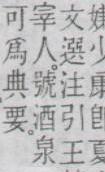 少康卽夏
文選注引王
宰人。號酒泉
可爲典要。